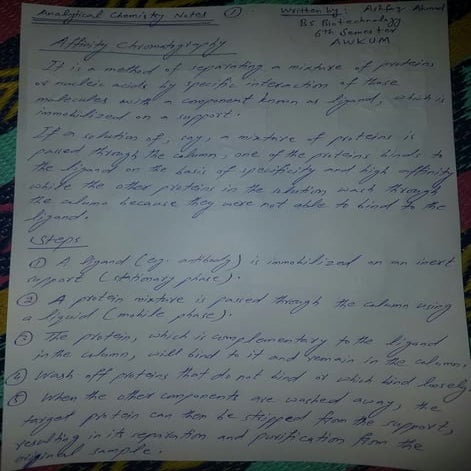 Analytical Chemistry Notes ① Written by: Ashfaq Ahmad
Bs Biotechnology
6th Semester
AWKUM
Affinity Chromatography
It is a method of separating a mixture of proteins
or nucleic acids by specific interaction of those
molecules with a component known as ligand, which is
immobilized on a support.
If a solution of, say, a mixture of proteins is
passed through the column, one of the proteins binds to
the ligand on the basis of specificity and high affinity
while the other proteins in the solution wash through
the column because they were not able to bind to the
ligand.
Steps
① A ligand (eg. antibody) is immobilized on an inert
support (stationary phase).
② A protein mixture is passed through the column using
a liquid (mobile phase).
③ The protein, which is complementary to the ligand
in the column, will bind to it and remain in the column.
④ Wash off proteins that do not bind or which bind loosely.
⑤ When the other components are washed away, the
target protein can then be stripped from the support,
resulting in its separation and purification from the
original sample.